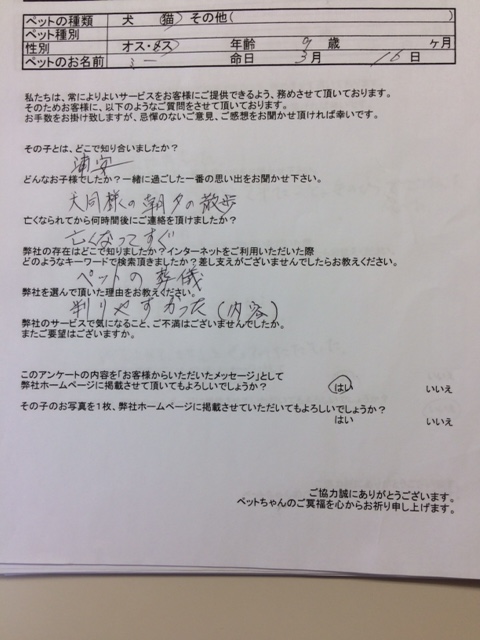 ペットの種類 犬 猫 その他( )
ペット種別
性別 オス・メス 年齢 9 歳 ヶ月
ペットのお名前 ミー 命日 3月 16日
私たちは、常によりよいサービスをお客様にご提供できるよう、務めさせて頂いております。
そのためお客様に、以下のようなご質問をさせて頂いております。
お手数をお掛け致しますが、忌憚のないご意見、ご感想をお聞かせ頂ければ幸いです。
その子とは、どこで知り合いましたか？
浦安
どんなお子様でしたか？一緒に過ごした一番の思い出をお聞かせ下さい。
犬同様くの朝夕の散歩
亡くなられてから何時間後にご連絡を頂けましたか？
亡くなってすぐ
弊社の存在はどこで知りましたか？インターネットをご利用いただいた際
どのようなキーワードで検索頂きましたか？差し支えがございませんでしたらお教えください。
ペットの葬儀
弊社を選んで頂いた理由をお教えください。
判りやすかった(内容)
弊社のサービスで気になること、ご不満はございませんでしたか。
またご要望はございますか。
このアンケートの内容を「お客様からいただいたメッセージ」として
弊社ホームページに掲載させて頂いてもよろしいでしょうか？ はい いいえ
その子のお写真を1枚、弊社ホームページに掲載させていただいてもよろしいでしょうか？
はい いいえ
ご協力誠にありがとうございます。
ペットちゃんのご冥福を心からお祈り申し上げます。